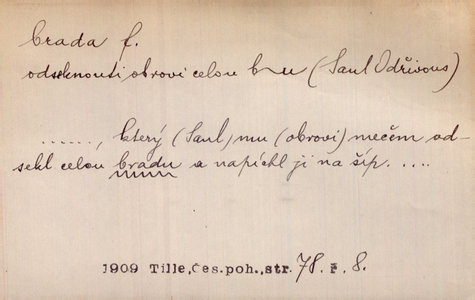 brada f.
odseknouti obrovi celou b-u (Saul Odřivous)
......, který (Saul) mu (obrovi) mečem od-
sekl celou bradu a napíchl ji na šíp. ....
1909 Tille,Čes.poh.,str. 78. ř. 8.